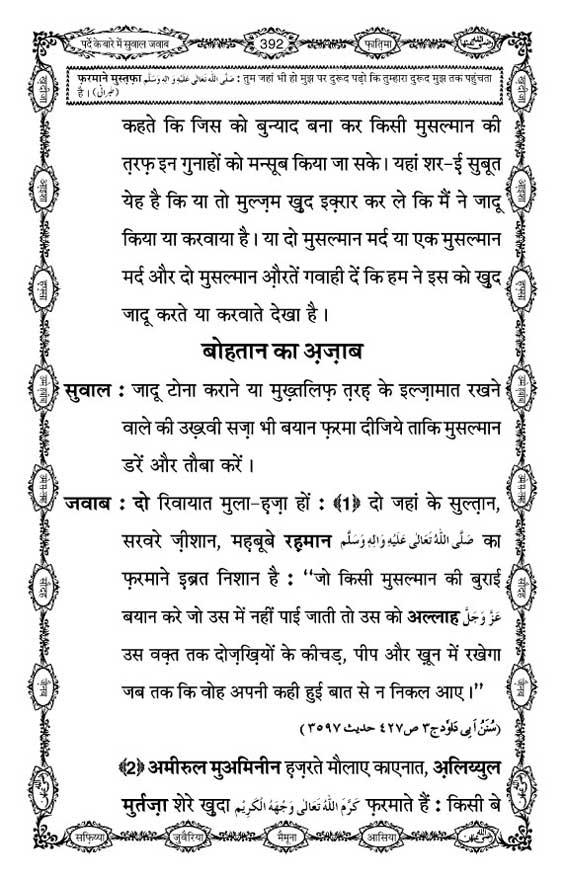 पर्दे के बारे में सुवाल जवाब
392
फ़ातिमा
फ़रमाने मुस्तफ़ा صَلَّى اللّٰهُ تَعَالٰى عَلَيْهِ وَاٰلِهٖ وَسَلَّم : तुम जहां भी हो मुझ पर दुरूद पढ़ो कि तुम्हारा दुरूद मुझ तक पहुंचता
है । (طبرانی)
कहते कि जिस को बुन्याद बना कर किसी मुसल्मान की
त़रफ़ इन गुनाहों को मन्सूब किया जा सके। यहां शर-ई सुबूत
येह है कि या तो मुल्ज़म खुद इक़्रार कर ले कि मैं ने जादू
किया या करवाया है। या दो मुसल्मान मर्द या एक मुसल्मान
मर्द और दो मुसल्मान औ़रतें गवाही दें कि हम ने इस को खुद
जादू करते या करवाते देखा है।
बोहतान का अ़ज़ाब
सुवाल : जादू टोना कराने या मुख़्तलिफ़ त़रह़ के इल्ज़ामात रखने
वाले की उख़्रवी सज़ा भी बयान फ़रमा दीजिये ताकि मुसल्मान
डरें और तौबा करें ।
जवाब : दो रिवायात मुला-ह़ज़ा हों : ﴾1﴿ दो जहां के सुल्त़ान,
सरवरे ज़ीशान, मह़बूबे रह़मान صَلَّى اللّٰهُ تَعَالٰى عَلَيْهِ وَاٰلِهٖ وَسَلَّم का
फ़रमाने इब्रत निशान है : ‘‘जो किसी मुसल्मान की बुराई
बयान करे जो उस में नहीं पाई जाती तो उस को अल्लाह عَزَّ وَجَلَّ
उस वक़्त तक दोज़ख़ियों के कीचड़, पीप और ख़ून में रखेगा
जब तक कि वोह अपनी कही हुई बात से न निकल आए।’’
(سُنَنُ اَبِی دَاوٗد ج٣ ص٤٢٧ حدیث ٣٥٩٧)
﴾2﴿ अमीरुल मुअमिनीन ह़ज़रते मौलाए काएनात, अ़लिय्युल
मुर्तज़ा शेरे खुदा كَرَّمَ اللّٰهُ تَعَالٰى وَجْهَهُ الْكَرِيْم फ़रमाते हैं : किसी बे
सफ़िय्या
जुवैरिया
मैमूना
आसिया